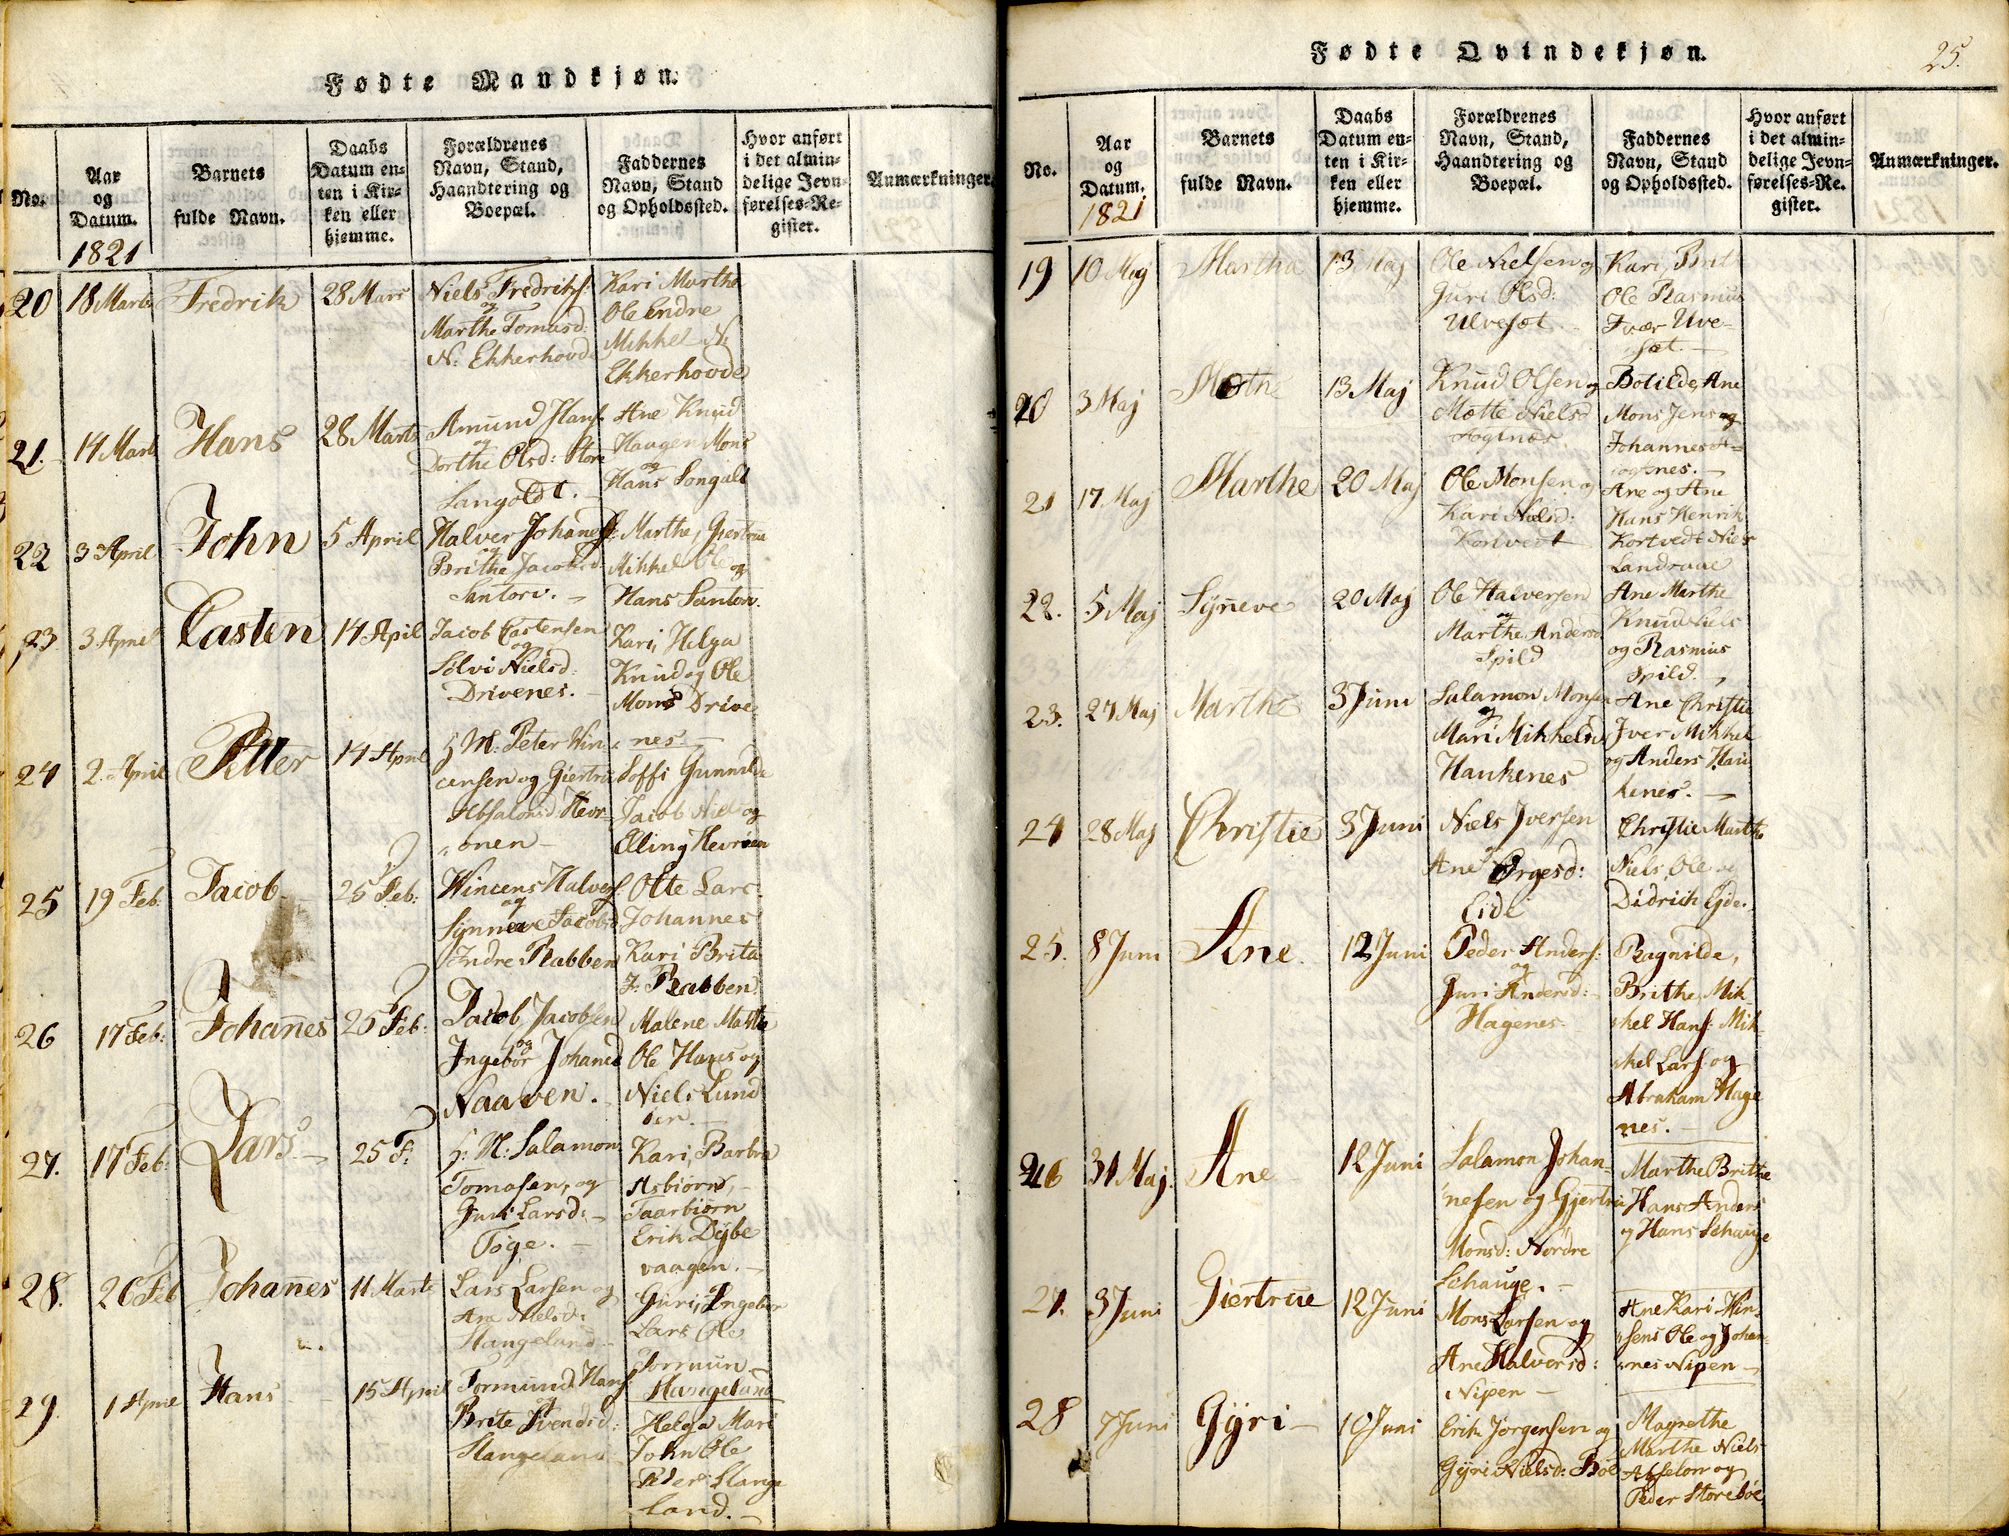 Fødte Mandkjøn.
No.
Aar
og
Datum.
1821
Barnets
fulde Navn.
Daabs
Datum en-
ten i Kir-
ken eller
hjemme.
Forældrenes
Navn, Stand,
Haandtering og
Boepæl.
Faddernes
Navn, Stand
og Opholdssted.
Hvor anført
i det almin-
delige Jevn-
førelses-Re-
gister.
Anmærkninger.
20
18 Marts
Fredrik
28 Mars
Niels Fredriks:
og
Marthe Tomasd:
N: Ekkerhovde
Kari Marthe
Ole Endre
Mikkel N:
Ekkerhovde
21.
14 Marts
Hans
28 Marts
Amund Hans:
og
Dorthe Olsd: Store
Sangoldt.
Ane Knud
Haagen Mons
og
Hans Songolt
22
3 April
John
5 April
Halver Johanes:
og
Brithe Jacobsd
Santorv.
Marthe, Giertrue
Mikkel Ole og
Hans Santorv.
23.
3 April
Casten
14 April
Jacob Castensen
og
Sølvi Nielsd:
Drivenes.
Kari, Helga
Knud og Ole
Mons Drive
nes.
24
2. April
Petter
14 April
H: M: Peter Win
censen og Giertrue
Absalonsd: Hevr
onen
Soffi Gunnilde
Jacob Niels og
Elling Hevrøen
25
19 Feb:
Jacob
25 Feb:
Wincens Halvers:
og
Synneve Jacobsd
Indre Rabben
Olte Lars
Johannes
Kari Brita
I: Rabben
26
17 Feb:
Johannes
25 Feb:
Jacob Jacobsen
og
Ingebor Johanesd
Naaven.
Malene Marthe
Ole Hans og
Niels Lund
øen.
27.
17 Feb:
Lars
25 F:
H: M: Salamon
Tomasen, og
Guri Larsd:
Toge.
Kari, Barbra
Asbiorn,
Taarbiørn
Erik Dybe
vaagen.
28.
26 Feb
Johannes
11 Marts
Lars Larsen og
Ane Nielsd:
Stangeland
Guri, Ingebor
Lars Ole
Tormun
Stangeland
29.
1 April
Hans
15 April
Tormund Hans:
og
Brite Svendsd:
Stangeland
Helga Mari
John Ole
Peder Stange
land.
Fødte Qvindekjøn.
25.
No.
Aar
og
Datum.
1821
Barnets
fulde Navn.
Daabs
Datum en-
ten i Kir-
ken eller
hjemme.
Forældrenes
Navn, Stand,
Haandtering og
Boepæl.
Faddernes
Navn, Stand
og Opholdssted.
Hvor anført
i det almin-
delige Jevn-
førelses-Re-
gister.
Anmærkninger.
19
10 Maj
Martha
13 Maj
Ole Nielsen og
Guri Olsd:
Ulvesæt
Kari, Brit
Ole Rasmus
Ivær Ulve-
sæt.
20
3 Maj
13 Maj
Knud Olsen og
Mætte Nielsd
Botilde, Ane
Mons Jens og
Johannes
21
17 Maj
Marthe
20 Maj
Ole Monsen og
Kari Nielsd:
Kortvedt
Ane og Ane
Hans Henrik
Kortvedt Niels
Landraae
22.
5 Maj
Syneve
20 Maj
Ole Halversen
og
Marthe Andersd
Spild
Ane Marthe
Knud Niels
og Rasmus
Spild.
23.
27 Maj
Marthe
3 Juni
Salamon Monsen
og
Mari Mikkelsd
Haukenes
Ane Christie
Iver Mikkel
og Anders Hau
kenes.
24
28 Maj
Christie
3 Juni
Niels Iversen
Ane Ørgesd:
Eide
Christie Marthe
Niels, Ole og
Didrich Ejde.
25.
8 Juni
Ane
12 Juni
Peder Anders:
og
Guri Andersd:
Hagenes
Ragnilde,
Brithe, Mik-
kel Hans: Mik-
kel Lars: og
Abraham Hage
nes.
26
31 Maj.
Ane
12 Juni
Salamon Johan-
nesen og Gjertrue
Monsd: Nordre
Schauge.
Marthe Brithe
Hans Anders
og Hans Schauge
27.
3 Juni
Giertrue
12 Juni
Mons Larsen og
Ane Halversd:
Nipen
Ane Kari Win-
sens Ole og Johan-
nes Nipen
28
7 Juni
Gÿri
10 Juni
Erik Jørgensen og
Gÿri Nielsd: Bøe
Magrethe
Marthe Niels
Abselon og
Peder Storebøe